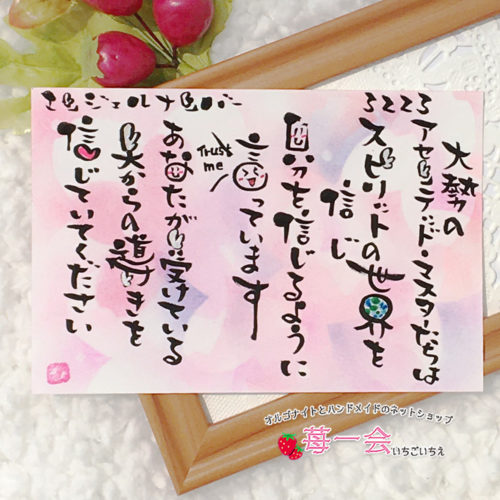 エンジェルナンバー
3223
大勢の
アセンデッド・マスターたちは
スピリットの世界を
信じ
自分を信じるように
言っています
Trust
me
あなたが今受けている
天からの導きを
信じていてください
オルゴナイトとハンドメイドのネットショップ
苺一会いちごいちえ